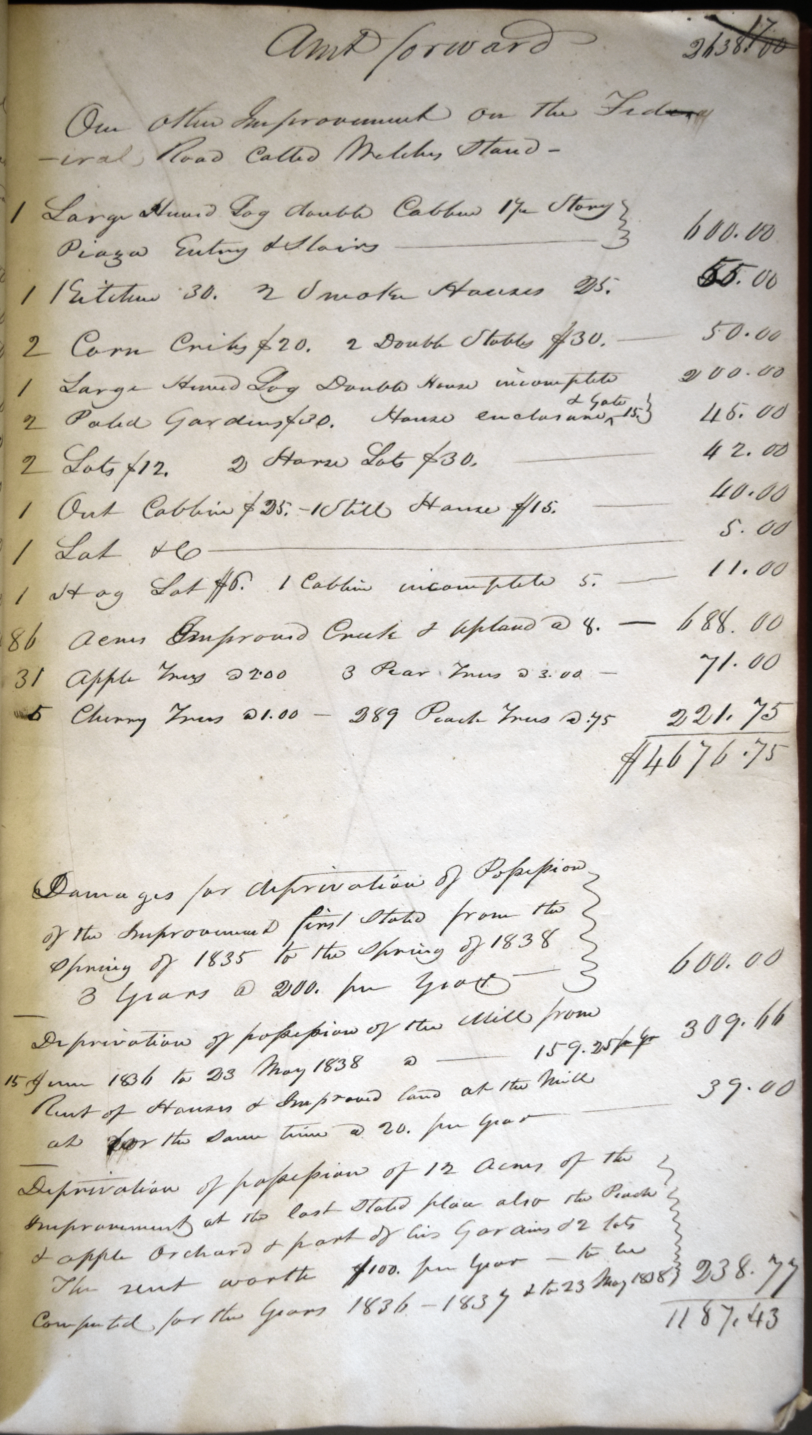 17
Amt forward 2638.00
One other Improvement on the Fed
-iral Road Called Welches Stand -
1 Large Hewed Log double Cabbin 1½ Story
Piaza Entry & Stairs 600.00
1 Kitchen 30. 2 Smoke Houses 25. 55.00
2 Corn Cribs $20. 2 Double Stables $30. — 50.00
1 Large Hewed Log Double House incomplete 200.00
2 Paled Gardens $30. House enclosure & Gate 15 45.00
2 Lots $12. 2 Horse Lots $30. — 42.00
1 Out Cabbin $25. - 1 Still House $15. — 40.00
1 Lot &C — 5.00
1 Hog Lot $6. 1 Cabbin incomplete 5. — 11.00
86 Acres Improved Creek & Upland @ 8. — 688.00
31 Apple Trees @ 2.00 3 Pear Trees @ 3.00 — 71.00
5 Cherry Trees @ 1.00 — 289 Peach Trees @ .75 221.75
$4676.75
Damages for deprivation of Possession
of the Improvement first Stated from the
Spring of 1835 to the Spring of 1838
3 Years @ 200. per Year — 600.00
Deprivation of possession of the Mill from
15 June 1836 to 23 May 1838 @ — 159.25 pr yr 309.66
Rent of Houses & Improved land at the Mill
at for the Same time @ 20. per Year — 39.00
Deprivation of possession of 12 Acres of the
Improvement at the last Stated place also the Peach
& apple Orchard & part of his Gardens & 2 lots
The rent worth $100. per Year — to be
Computed for the Years 1836 - 1837 & to 23 May 1838 238.77
1187.43